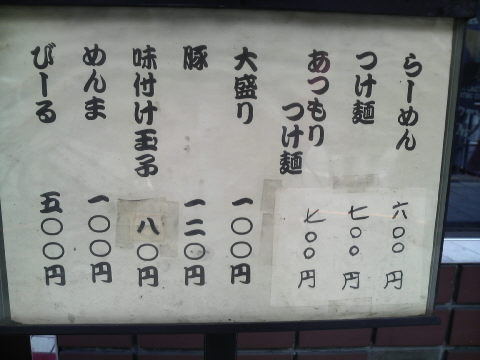 らーめん 六〇〇円
つけ麺 七〇〇円
あつもりつけ麺 七〇〇円
大盛り 一〇〇円
豚 一二〇円
味付け玉子 八〇円
めんま 一〇〇円
びーる 五〇〇円